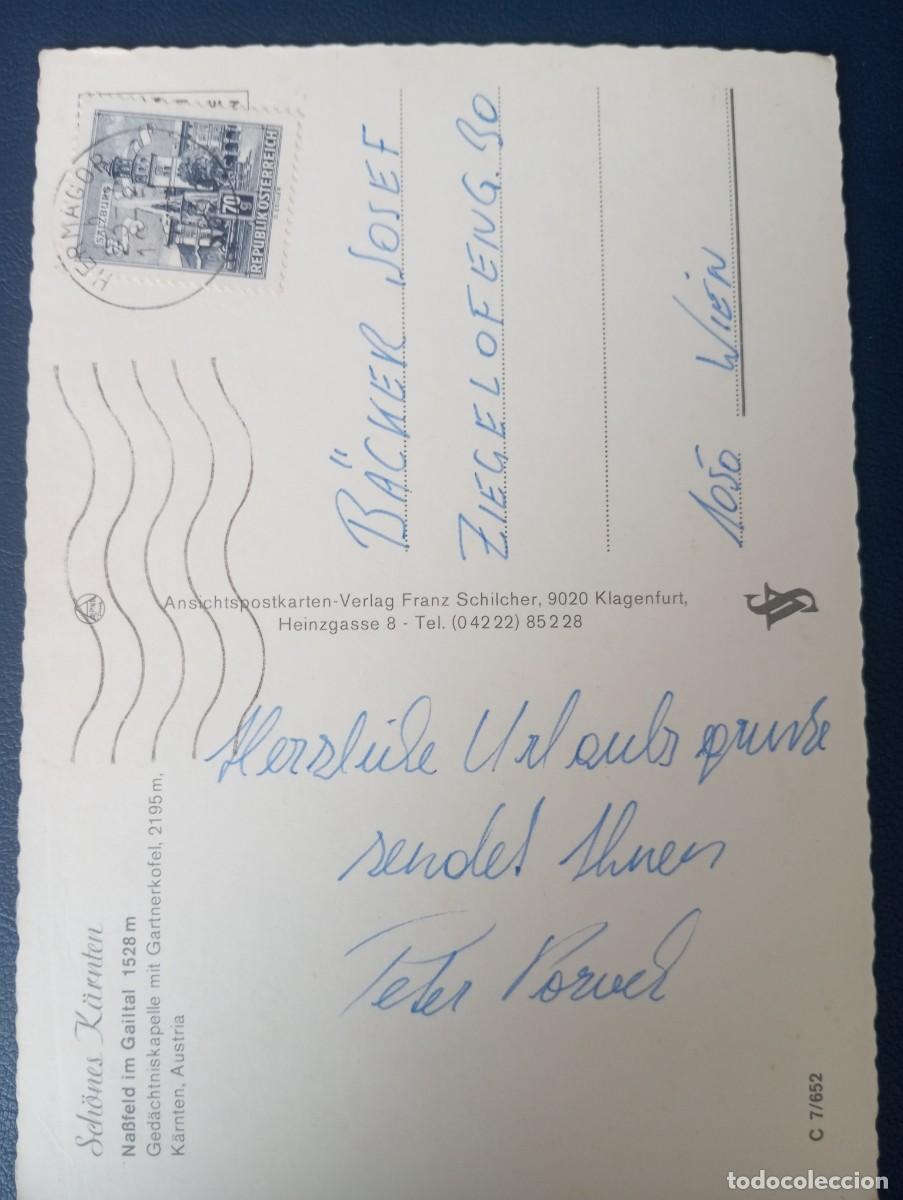 Schönes Kärnten
Naßfeld im Gailtal 1528 m
Gedächtniskapelle mit Gartnerkofel, 2195 m,
Kärnten, Austria
Herzliche Urlaubsgrüsse
sendet Ihnen
Peter
C 7/652
Ansichtspostkarten-Verlag Franz Schilcher, 9020 Klagenfurt,
Heinzgasse 8 - Tel. (0 42 22) 8 52 28
HERMAGOR
SALZBURG
70 g
REPUBLIK ÖSTERREICH
BÄCKER JOSEF
ZIEGELOFENG. 30
1050 WIEN
todocoleccion